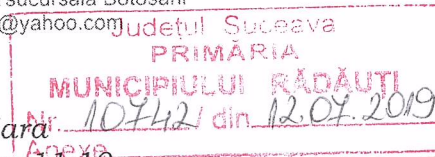 sucursala Botoșani
@yahoo.com
Județul Suceava
PRIMĂRIA
MUNICIPIULUI RĂDĂUȚI
Nr. 10742 / din 12.07.2019
Anexa